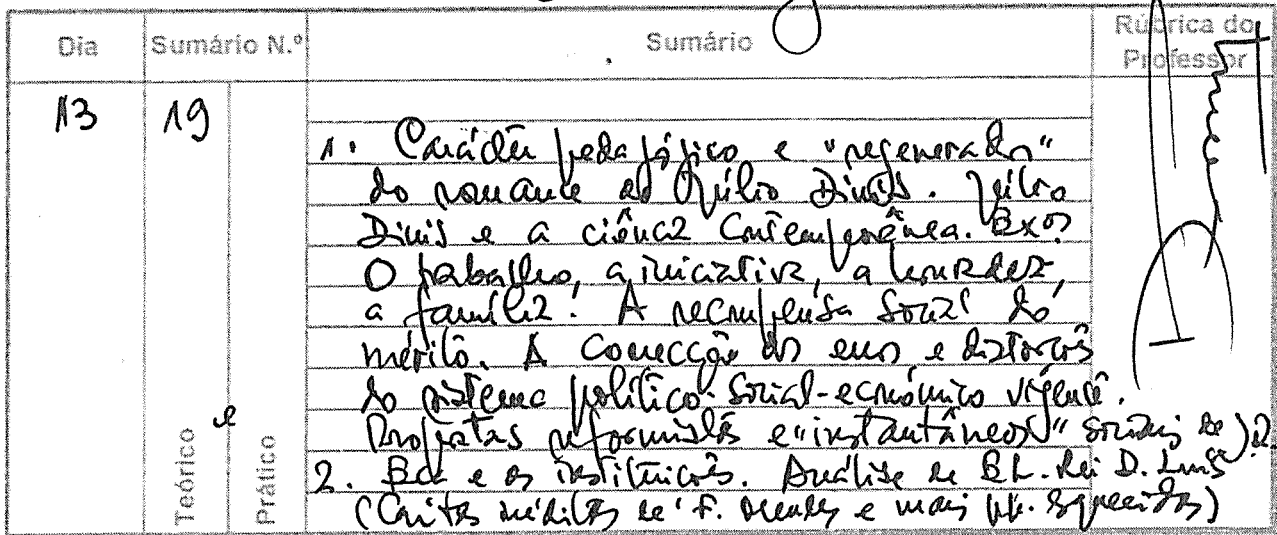 Dia Sumário N.º Sumário Rúbrica do Professor
13 19
1. Carácter pedagógico e "regenerador"
do romance de Júlio Dinis. Júlio
Dinis e a ciência contemporânea. Exos
O trabalho, a iniciativa, a honradez,
a família. A recompensa social do
mérito. A correcção dos erros e distorções
do sistema político-social-económico vigente.
Propostas reformistas e "instantâneos" sociais de J.D.
Teórico e Prático
2. Eça e as instituições. Análise de El-Rei D. Luís
(Cartas inéditas de F. Mendes e mais pp. esquecidas)